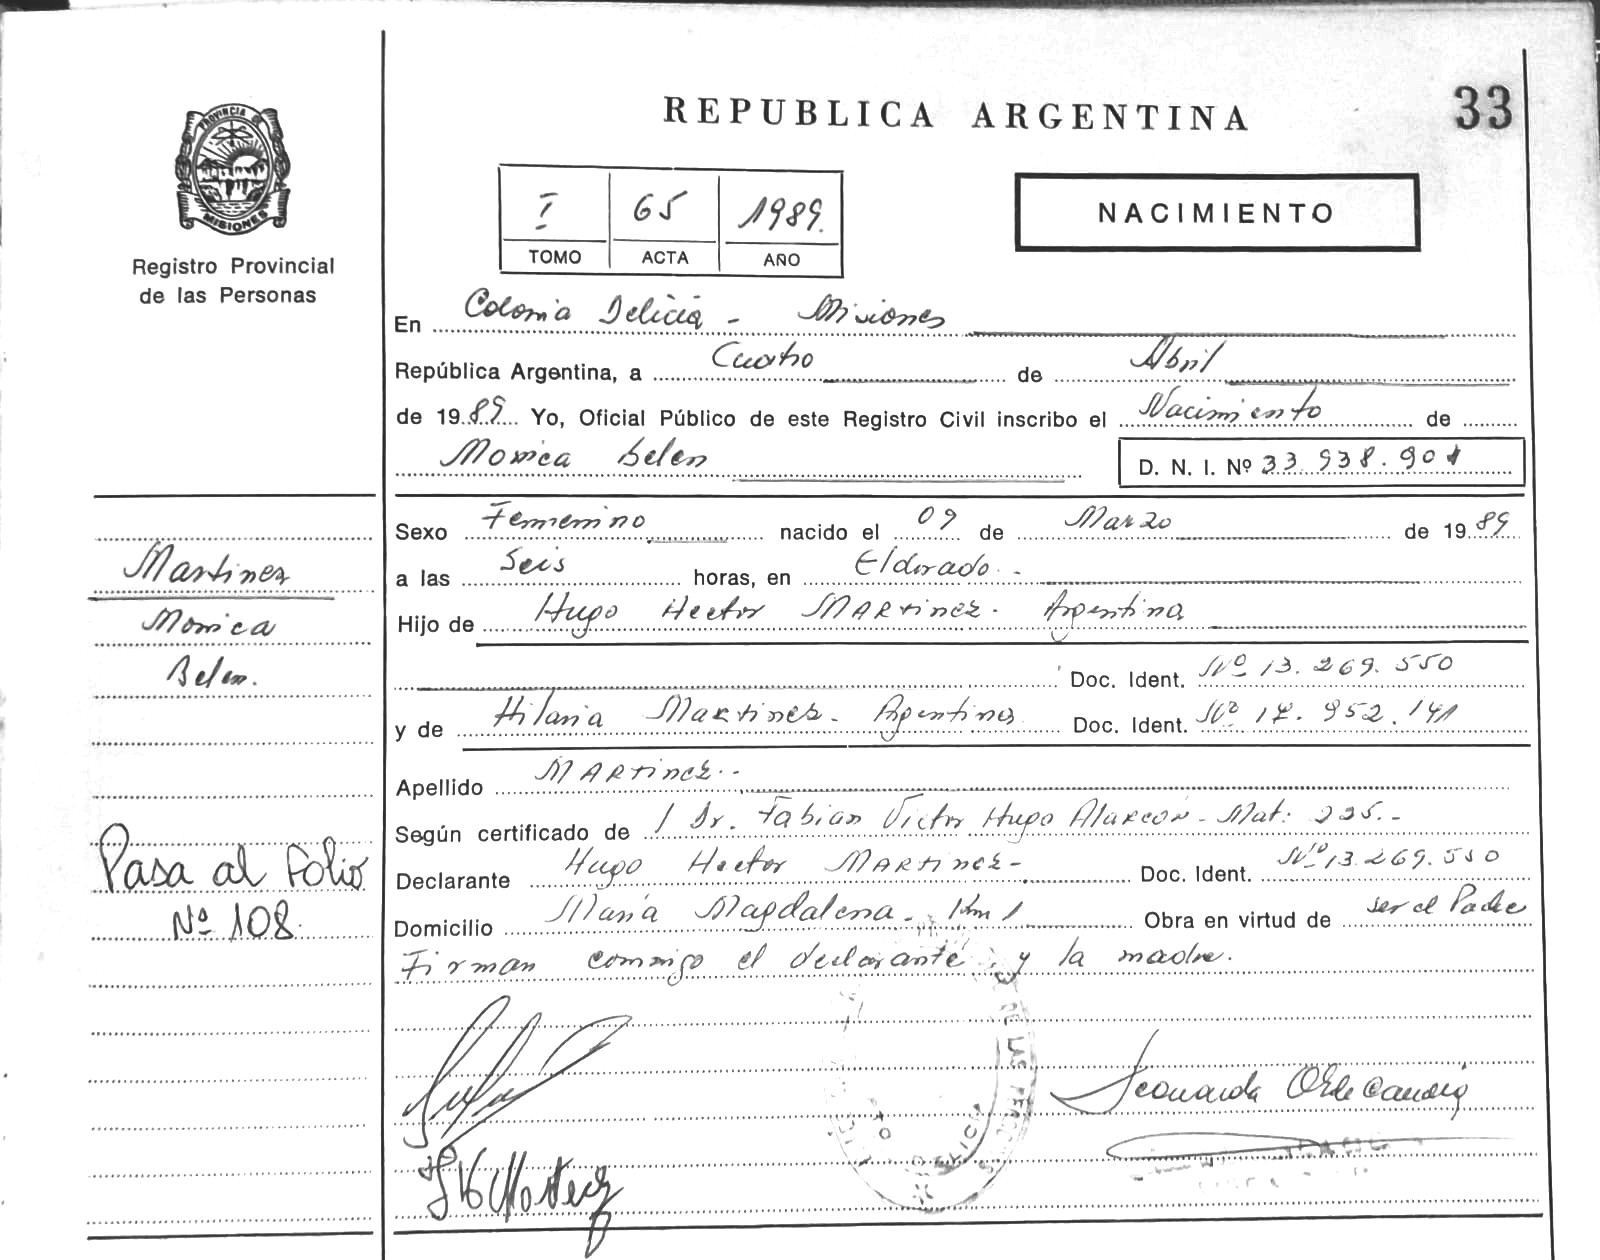 33
REPUBLICA ARGENTINA
PROVINCIA DE
MISIONES
Registro Provincial
de las Personas
I 65 1989.
TOMO ACTA AÑO
NACIMIENTO
En Colonia Delicia - Misiones
República Argentina, a Cuatro de Abril
de 1989 Yo, Oficial Público de este Registro Civil inscribo el Nacimiento de
Monica Belen D. N. I. Nº 33.938.901
Sexo Femenino nacido el 09 de Marzo de 1989
a las Seis horas, en Eldorado.-
Hijo de Hugo Hector MARTINEZ. Argentina
Doc. Ident. Nº 13.269.550
y de Hilaria Martinez. Argentina Doc. Ident. Nº 17.952.141
Apellido MARTINEZ.-
Según certificado de / Dr. Fabian Victor Hugo Alarcón - Mat: 225.-
Declarante Hugo Hector MARTINEZ- Doc. Ident. Nº 13.269.550
Domicilio Maria Magdalena - Km 1 Obra en virtud de ser el Padre
Firman conmigo el declarante y la madre.
Martinez
Monica
Belen.
Pasa al Folio
Nº 108.
DE LAS PERSONAS
DELICIA
Leonarda